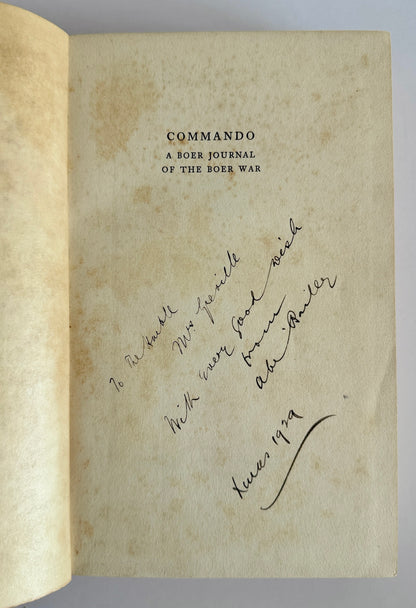 COMMANDO
A BOER JOURNAL
OF THE BOER WAR
To The Honble
Mrs Greville
With every good wish
from
Abe Bailey
Xmas 1929